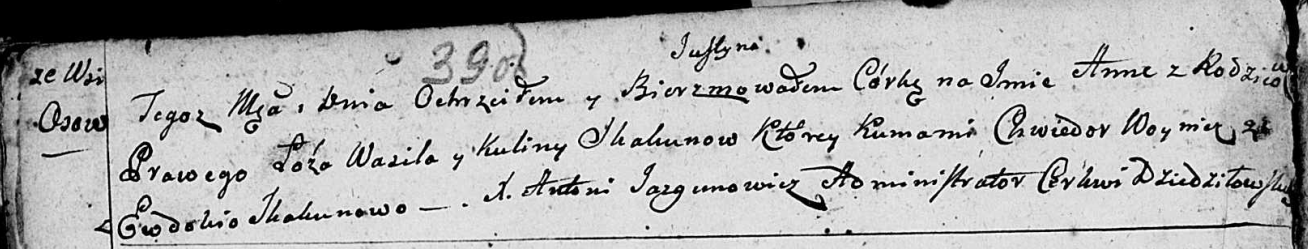 39об
Justyna
ze Wsi
Osow
Tegoż Mca i Dnia Ochrzciłem y Bierzmowałem Córkę na Imie Anne z Rodziców
Prawego Łoża Wasila y Kuliny Skakunow Którey Kumami Chwiedor Woynicz z
Ewdokio Skakunowo —. X. Antoni Jazgunowicz Administrator Cerkwi Dziedziłowskiey